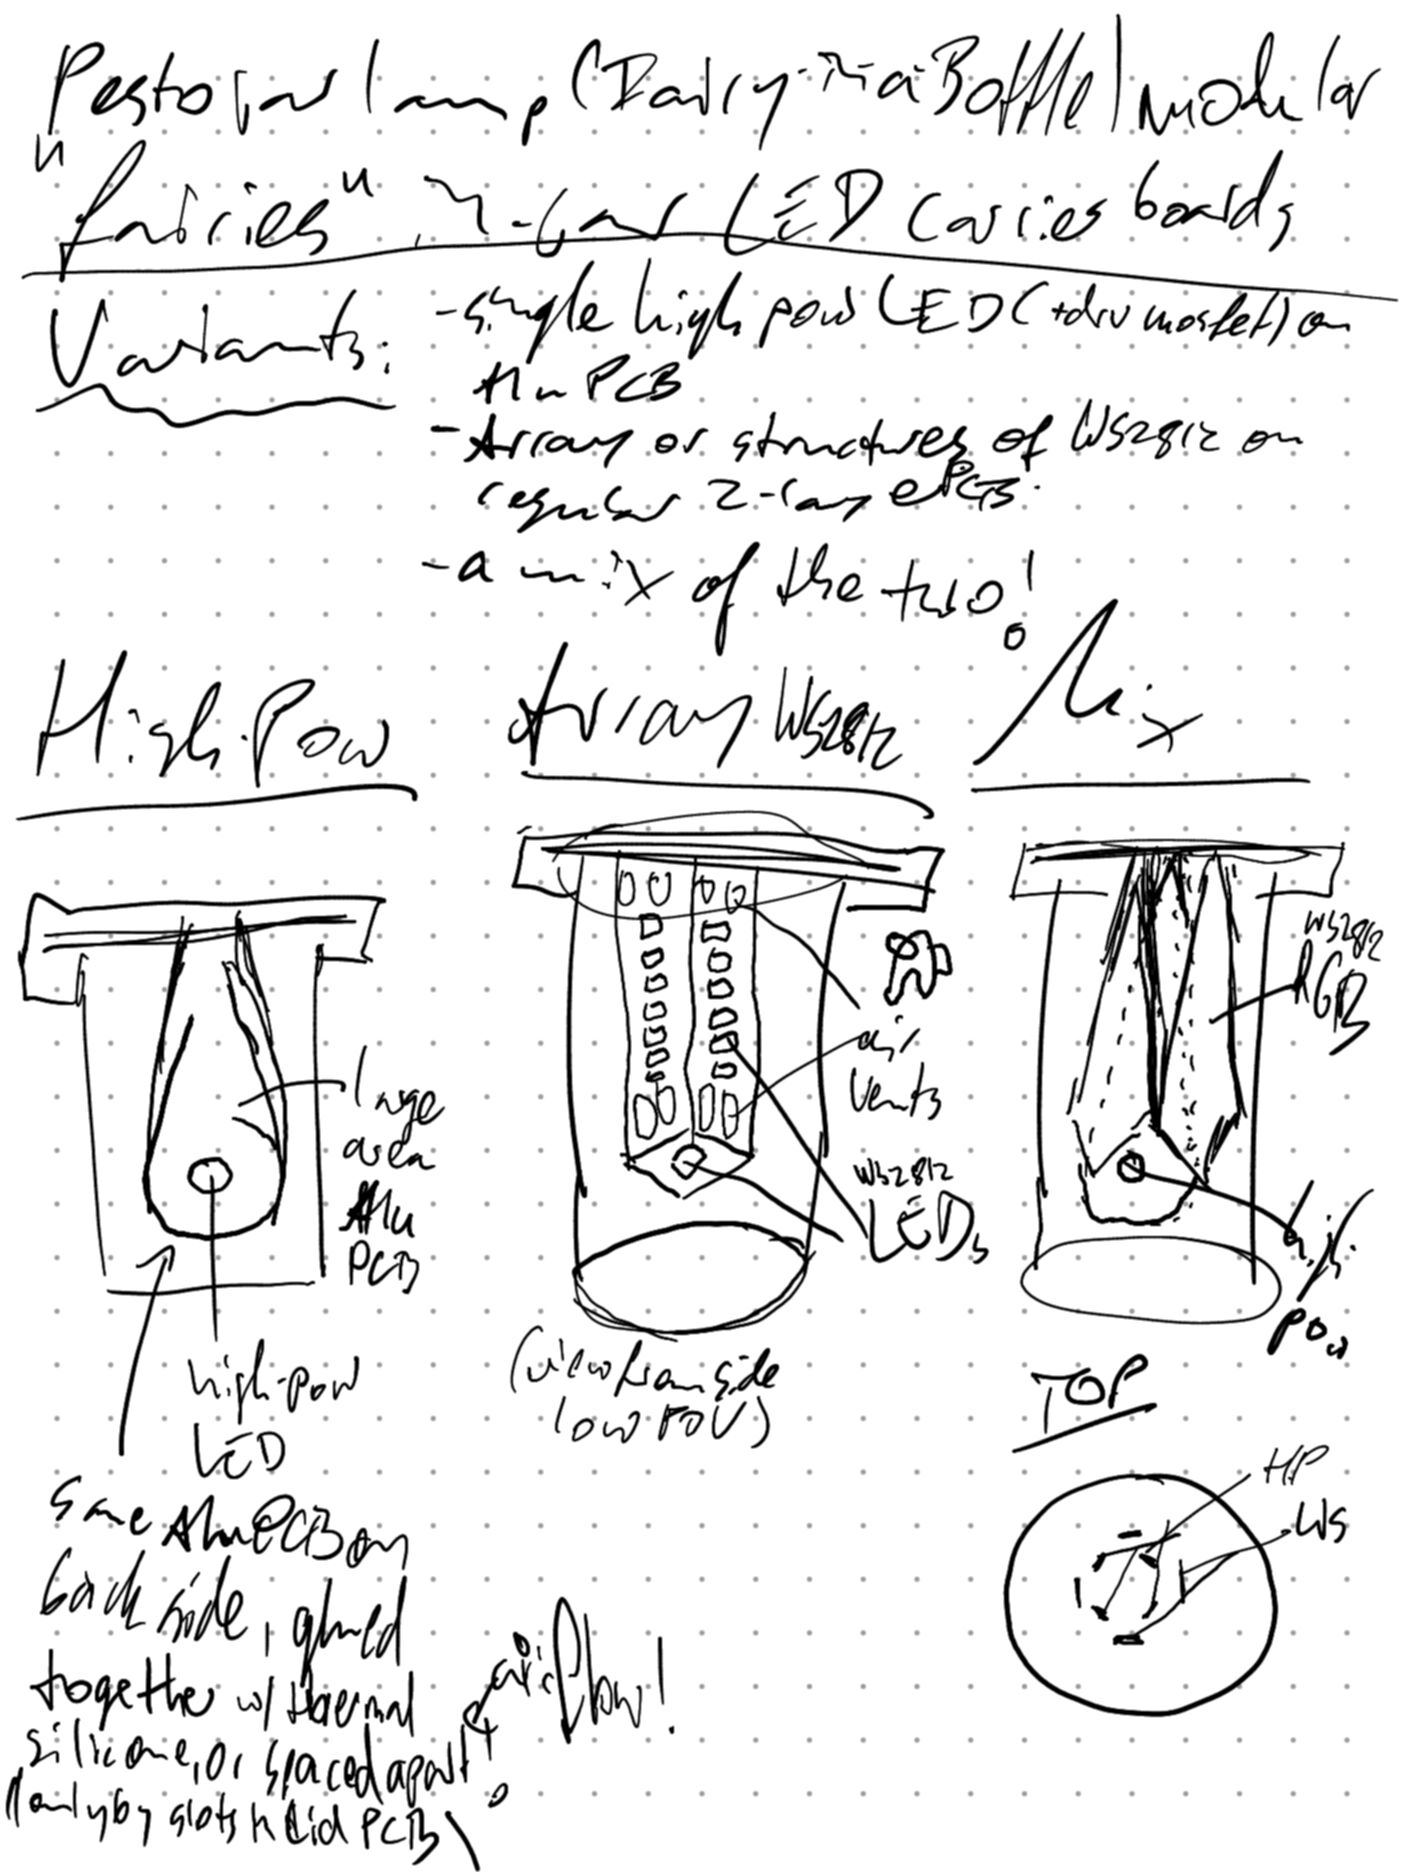 Pesto jar lamp (Fairy-in-a-Bottle) modular
"fairies" in-jar LED carrier boards
Variants:
- single high pow LED (+drv mosfet) on
Alu PCB
- Array or structures of WS2812 on
regular 2-layer PCB.
- a mix of the two!
High-Pow
Array WS2812
Mix
large
area
Alu
PCB
high-pow
LED
same Alu PCB on
back side, glued
together w/ thermal
silicone, or spaced apart
(only by slots in Lid PCB)
airflow!
air
vents
WS2812
LEDs
(view from side
low FOV)
WS2812
RGB
high
pow
TOP
HP
WS